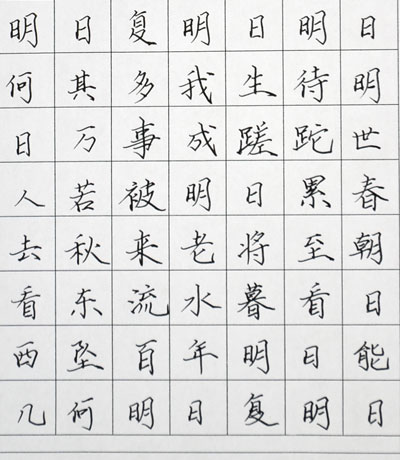 明日复明日明日
何其多我生待明
日万事成蹉跎世
人若被明日累春
去秋来老将至朝
看东流水暮看日
西坠百年明日能
几何明日复明日